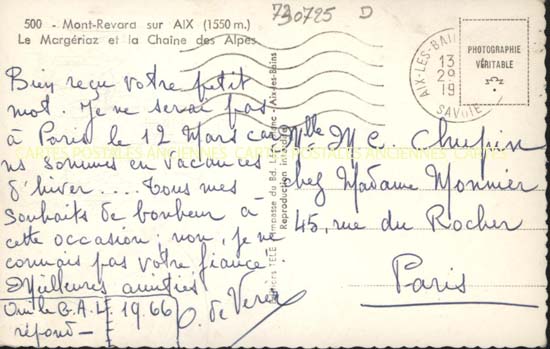 500 - Mont-Revard sur AIX (1550 m.)
Le Margériaz et la Chaîne des Alpes
730725 D
Bien reçu votre petit
mot. Je ne serai pas
à Paris le 12 Mars car
ns sommes en vacances
d'hiver.... Tous mes
souhaits de bonheur à
cette occasion; non, je ne
connais pas votre fiancé.
Meilleures amitiés
Oui le B.A.L. 1966
répond—
O. de
AIX-LES-BAINS
13
29
19
SAVOIE
PHOTOGRAPHIE
VÉRITABLE
Aix-les-Bains
Reproduction interdite
CARTES POSTALES ANCIENNES CARTES
Mlle M C Chupin
chez Madame Monnier
45, rue du Rocher
Paris